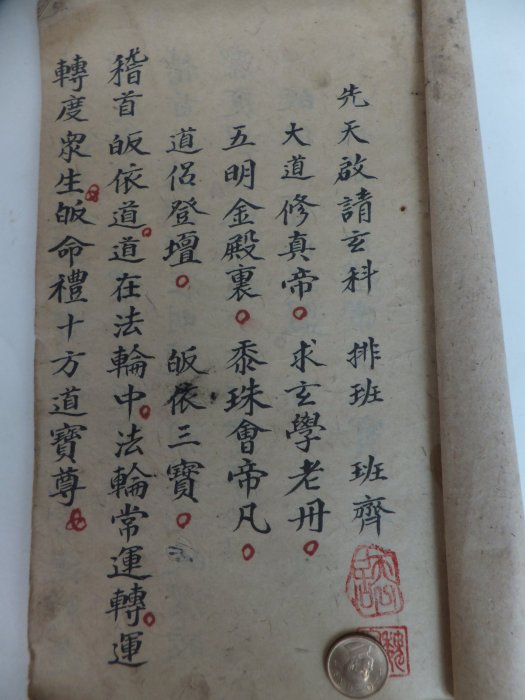 先天啟請玄科 排班 班齊
大道修真帝 求玄學老冊
五明金殿裏 黍珠會帝凡
道侶登壇 皈依三寶
稽首皈依道道在法輪中法輪常運轉運
轉度眾生皈命禮十方道寶尊
魏